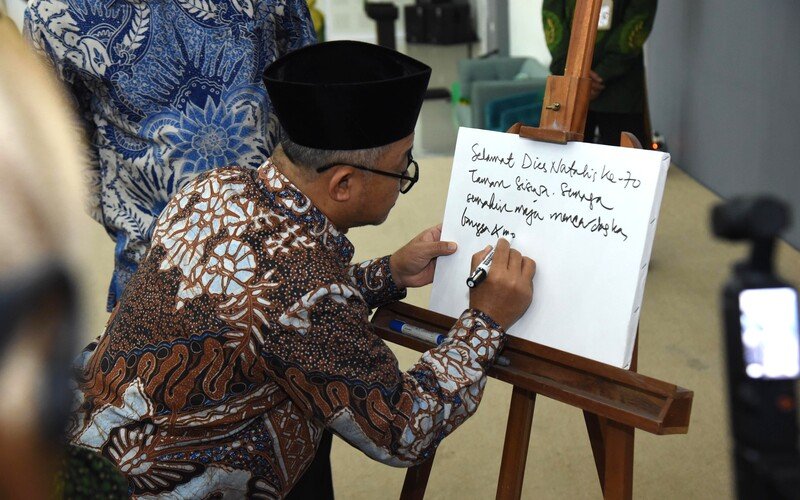 Selamat Dies Natalis ke-70
Taman Siswa. Semoga
semakin maju mencerdaskan
bangsa &